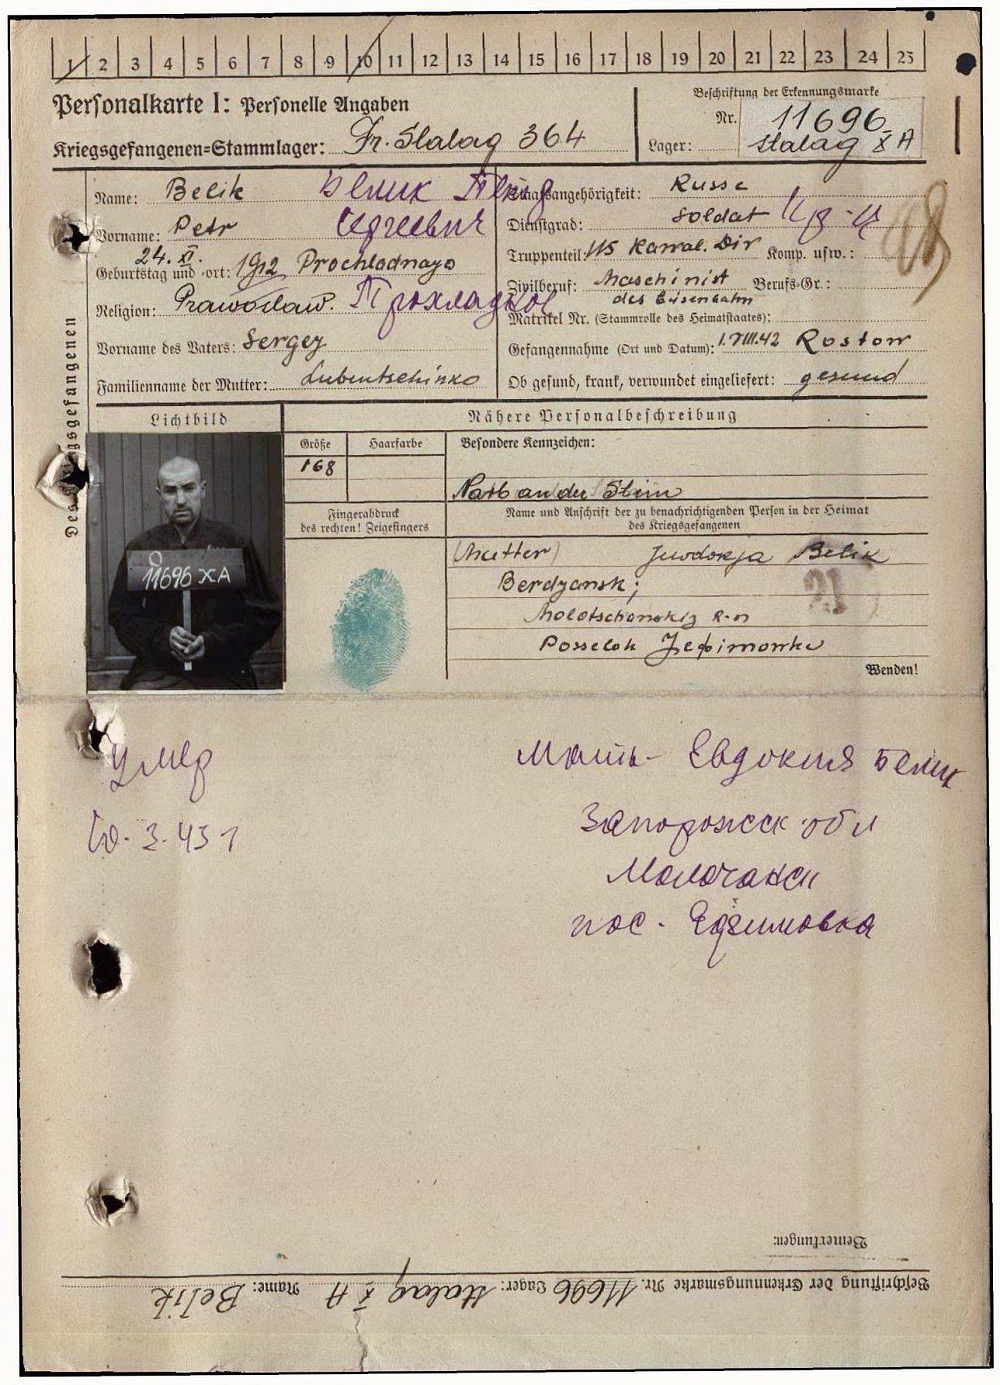 1 2 3 4 5 6 7 8 9 10 11 12 13 14 15 16 17 18 19 20 21 22 23 24 25
Personalkarte I: Personelle Angaben
Kriegsgefangenen=Stammlager: Fr. Stalag 364
Beschriftung der Erkennungsmarke
Nr. 11696
Lager: Stalag X A
Des Kriegsgefangenen
Name: Belik Белик Петр
Vorname: Petr Сергеевич
Geburtstag und -ort: 24. XI. 1912 Prochladnaya
Religion: Prawoslaw. Прохладное
Vorname des Vaters: Sergey
Familienname der Mutter: Lubentschinko
Staatsangehörigkeit: Russe
Dienstgrad: Soldat
Truppenteil: 115 Kawal. Div Komp. usw.:
Zivilberuf: Maschinist des Eisenbahn Berufs-Gr.:
Matrikel Nr. (Stammrolle des Heimatstaates):
Gefangennahme (Ort und Datum): 1.VIII.42 Rostow
Ob gesund, krank, verwundet eingeliefert: gesund
Lichtbild
Nähere Personalbeschreibung
Größe Haarfarbe Besondere Kennzeichen:
168
Narb an der Stirn
Fingerabdruck
des rechten! Zeigefingers
Name und Anschrift der zu benachrichtigenden Person in der Heimat
des Kriegsgefangenen
(Mutter) Jewdokja Belik
Berdyansk;
Molotschanskij R-n
Posselok Jefimowka
Wenden!
11696 XA
умер
10.3.43 г
Мать - Евдокия Белик
Запорожск обл
Молочанск
пос. Ефимовка
Bemerkungen:
Beschriftung der Erkennungsmarke Nr. 11696 Lager: Stalag X A Name: Belik